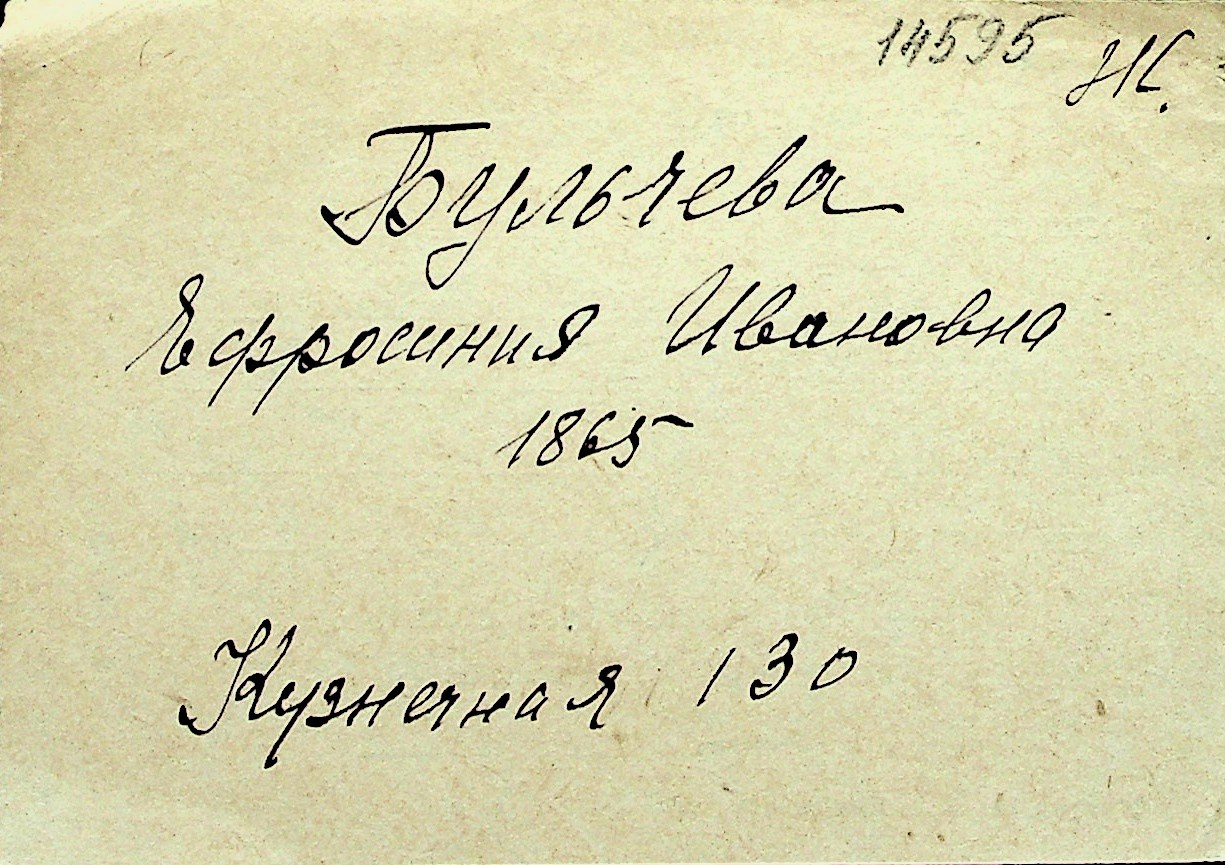 14595 Ж.
Бульчева
Ефросиния Ивановна
1865
Кузнечная 130